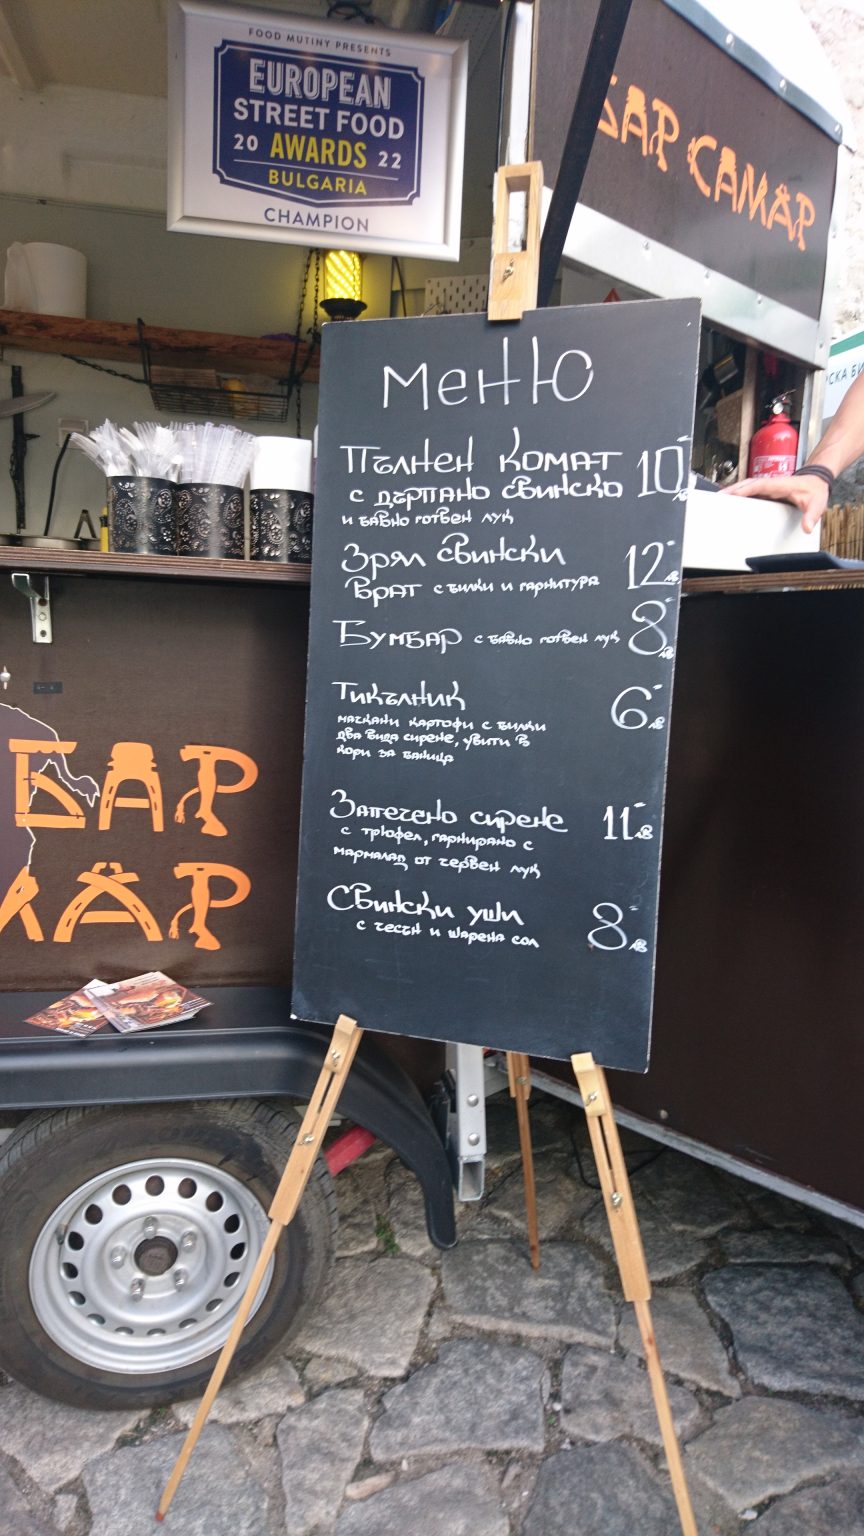 FOOD MUTINY PRESENTS
EUROPEAN
STREET FOOD
20 AWARDS 22
BULGARIA
CHAMPION
БАР САМАР
СКА БИ
Меню
Пълнен комат 10 лв
с дърпано свинско
и бавно готвен лук
Зрял свински 12 лв
врат с билки и гарнитура
Бумбар с бавно готвен лук 8 лв
Тикълник 6 лв
мачкани картофи с билки
два вида сирене, увити в
кори за баница
Запечено сирене 11 лв
с трюфел, гарнирано с
мармалад от червен лук
Свински уши 8 лв
с чесън и шарена сол
БАР
МАР